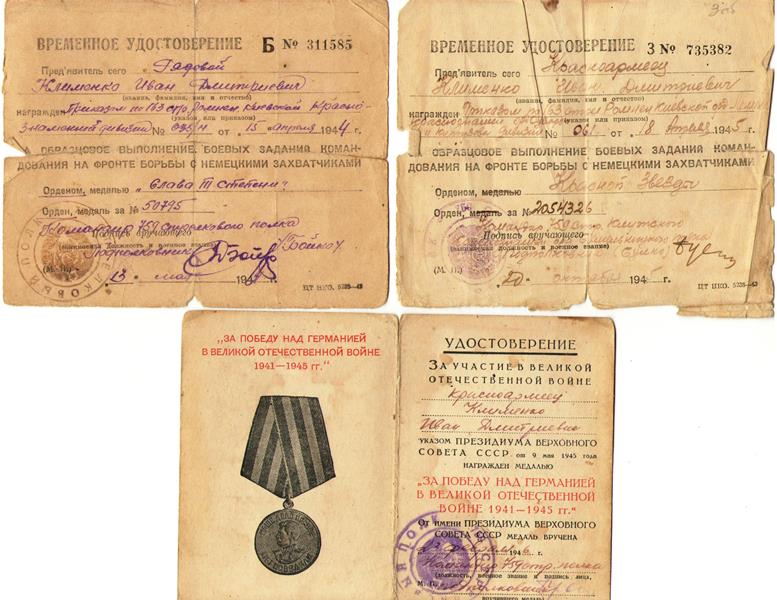 ВРЕМЕННОЕ УДОСТОВЕРЕНИЕ Б № 311585
Пред'явитель сего Рядовой
Клименко Иван Дмитриевич
(звание, фамилия, имя и отчество)
награжден Приказом по 163 Киевской Красно-
(указа или приказа)
знаменной дивизии № от 15 апреля 1944 г.
ЗА ОБРАЗЦОВОЕ ВЫПОЛНЕНИЕ БОЕВЫХ ЗАДАНИЙ КОМАН-
ДОВАНИЯ НА ФРОНТЕ БОРЬБЫ С НЕМЕЦКИМИ ЗАХВАТЧИКАМИ
Орденом, медалью „Слава III степени"
Орден, медаль за № 50795
Командир 759 стрелкового полка
Подпись вручающего
(наименование должность и военное звание)
Подполковник Бойко
(М. П.) 13 мая 194
ЦТ НКО. 5235—43
3 № 735382
ВРЕМЕННОЕ УДОСТОВЕРЕНИЕ
Пред'явитель сего Красноармеец
Клименко Иван Дмитриевич
(звание, фамилия, имя и отчество)
награжден Приказом 163 Киевской
(указа или приказа)
дивизии № 061 от 18 Апреля 1945 г.
ЗА ОБРАЗЦОВОЕ ВЫПОЛНЕНИЕ БОЕВЫХ ЗАДАНИЙ КОМАН-
ДОВАНИЯ НА ФРОНТЕ БОРЬБЫ С НЕМЕЦКИМИ ЗАХВАТЧИКАМИ
Орденом, медалью Красной Звезды
Орден, медаль за № 2054326
Командир 759
Подпись вручающего
(наименование должность и военное звание)
Подполковник
(М. П.) 20 октября 194 г.
ЦТ НКО. 5235—43
„ЗА ПОБЕДУ НАД ГЕРМАНИЕЙ
В ВЕЛИКОЙ ОТЕЧЕСТВЕННОЙ ВОЙНЕ
1941—1945 гг."
УДОСТОВЕРЕНИЕ
ЗА УЧАСТИЕ В ВЕЛИКОЙ
ОТЕЧЕСТВЕННОЙ ВОЙНЕ
Красноармеец
Клименко
Иван Дмитриевич
УКАЗОМ ПРЕЗИДИУМА ВЕРХОВНОГО
СОВЕТА СССР от 9 мая 1945 года
НАГРАЖДЕН МЕДАЛЬЮ
„ЗА ПОБЕДУ НАД ГЕРМАНИЕЙ
В ВЕЛИКОЙ ОТЕЧЕСТВЕННОЙ
ВОЙНЕ 1941—1945 гг."
От имени ПРЕЗИДИУМА ВЕРХОВНОГО
СОВЕТА СССР МЕДАЛЬ ВРУЧЕНА
февраля 194 г.
Командир 759 стр. полка
(должность, военное звание и подпись лица,
М. П. подполковник
вручившего медаль)